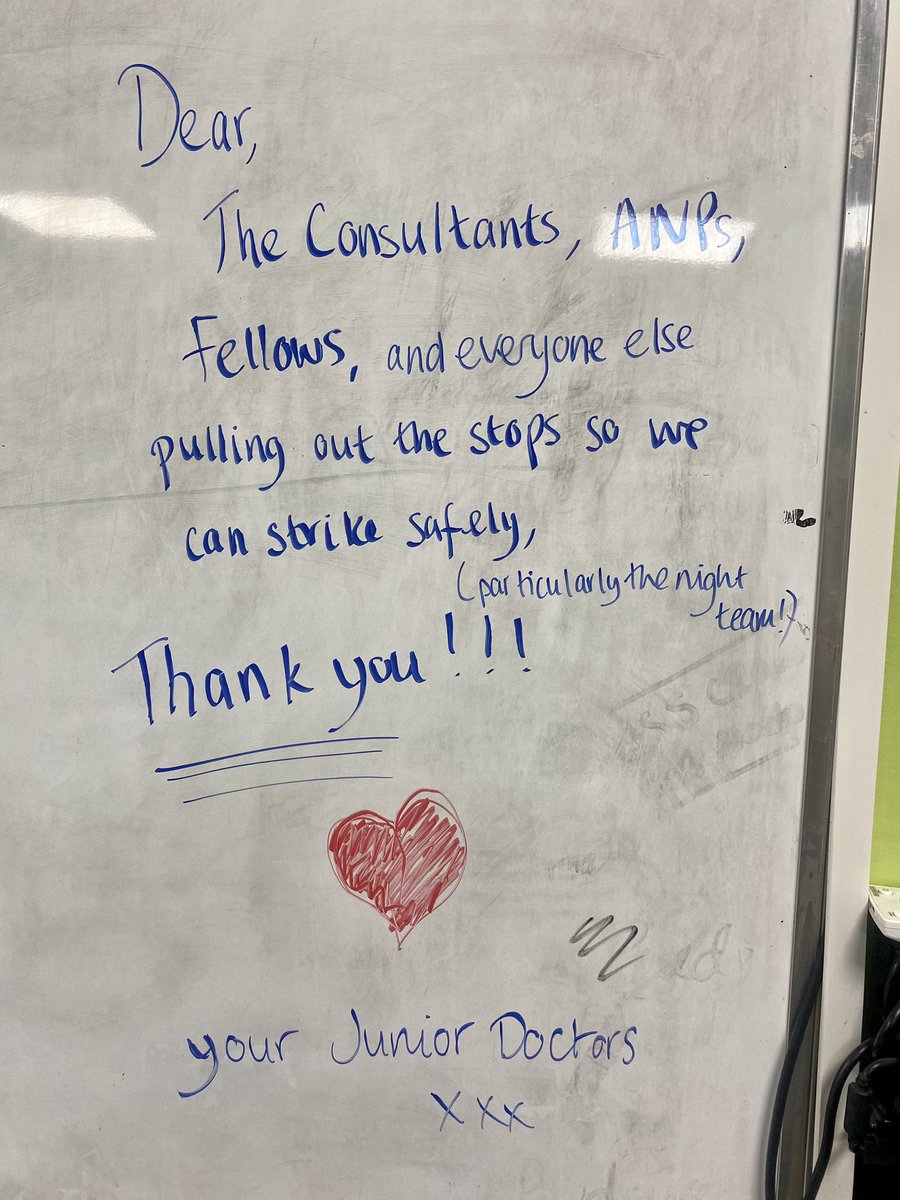 Dear,
The Consultants, ANPs,
Fellows, and everyone else
pulling out the stops so we
can strike safely,
(particularly the night
team!)
Thank you!!!
your Junior Doctors
xxx